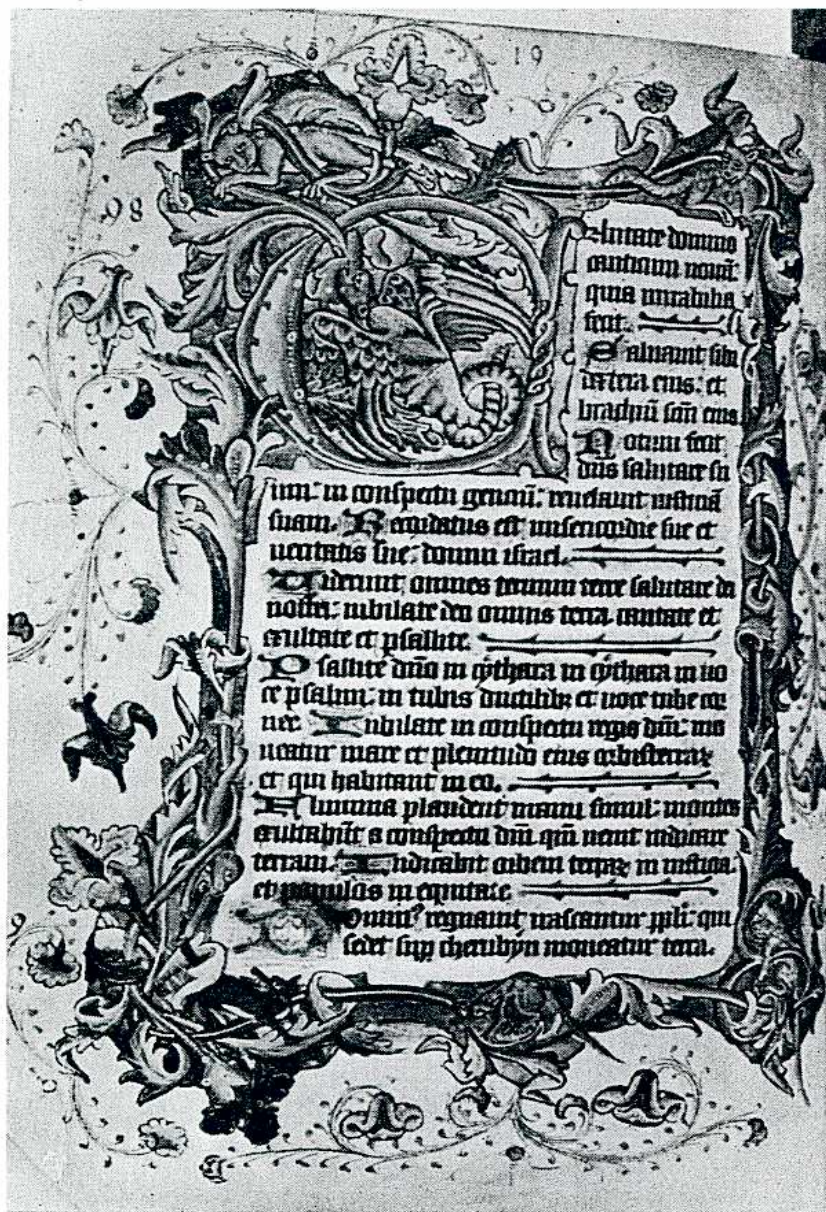 19
98
Cantate domino
canticum nouū
quia mirabilia
fecit.
Saluauit sibi
dextera eius: et
brachiū scm̄ eius
Notum fecit
dn̄s salutare su
um: in conspectu gentiū: reuelauit iusticiā
suam. Recordatus est misericordie sue et
ueritatis sue: domui israel.
Uiderunt omnes termini terre salutare dei
nostri: iubilate deo omnis terra cantate et
exultate et psallite.
Psallite dn̄o in cythara in cythara in uo
ce psalmi: in tubis ductilibꝫ et uoce tube cor
nee. Iubilate in conspectu regis dn̄i: mo
ueatur mare et plenitudo eius orbis terraꝝ
et qui habitant in eo.
Flumina plaudent manu simul: montes
exultabūt a conspectu dn̄i qm̄ uenit iudicare
terram. Iudicabit orbem terraꝝ in iusticia:
et populos in equitate.
Dominꝰ regnauit irascantur ppl̄i: qui
sedet sup̱ cherubyn moueatur terra.